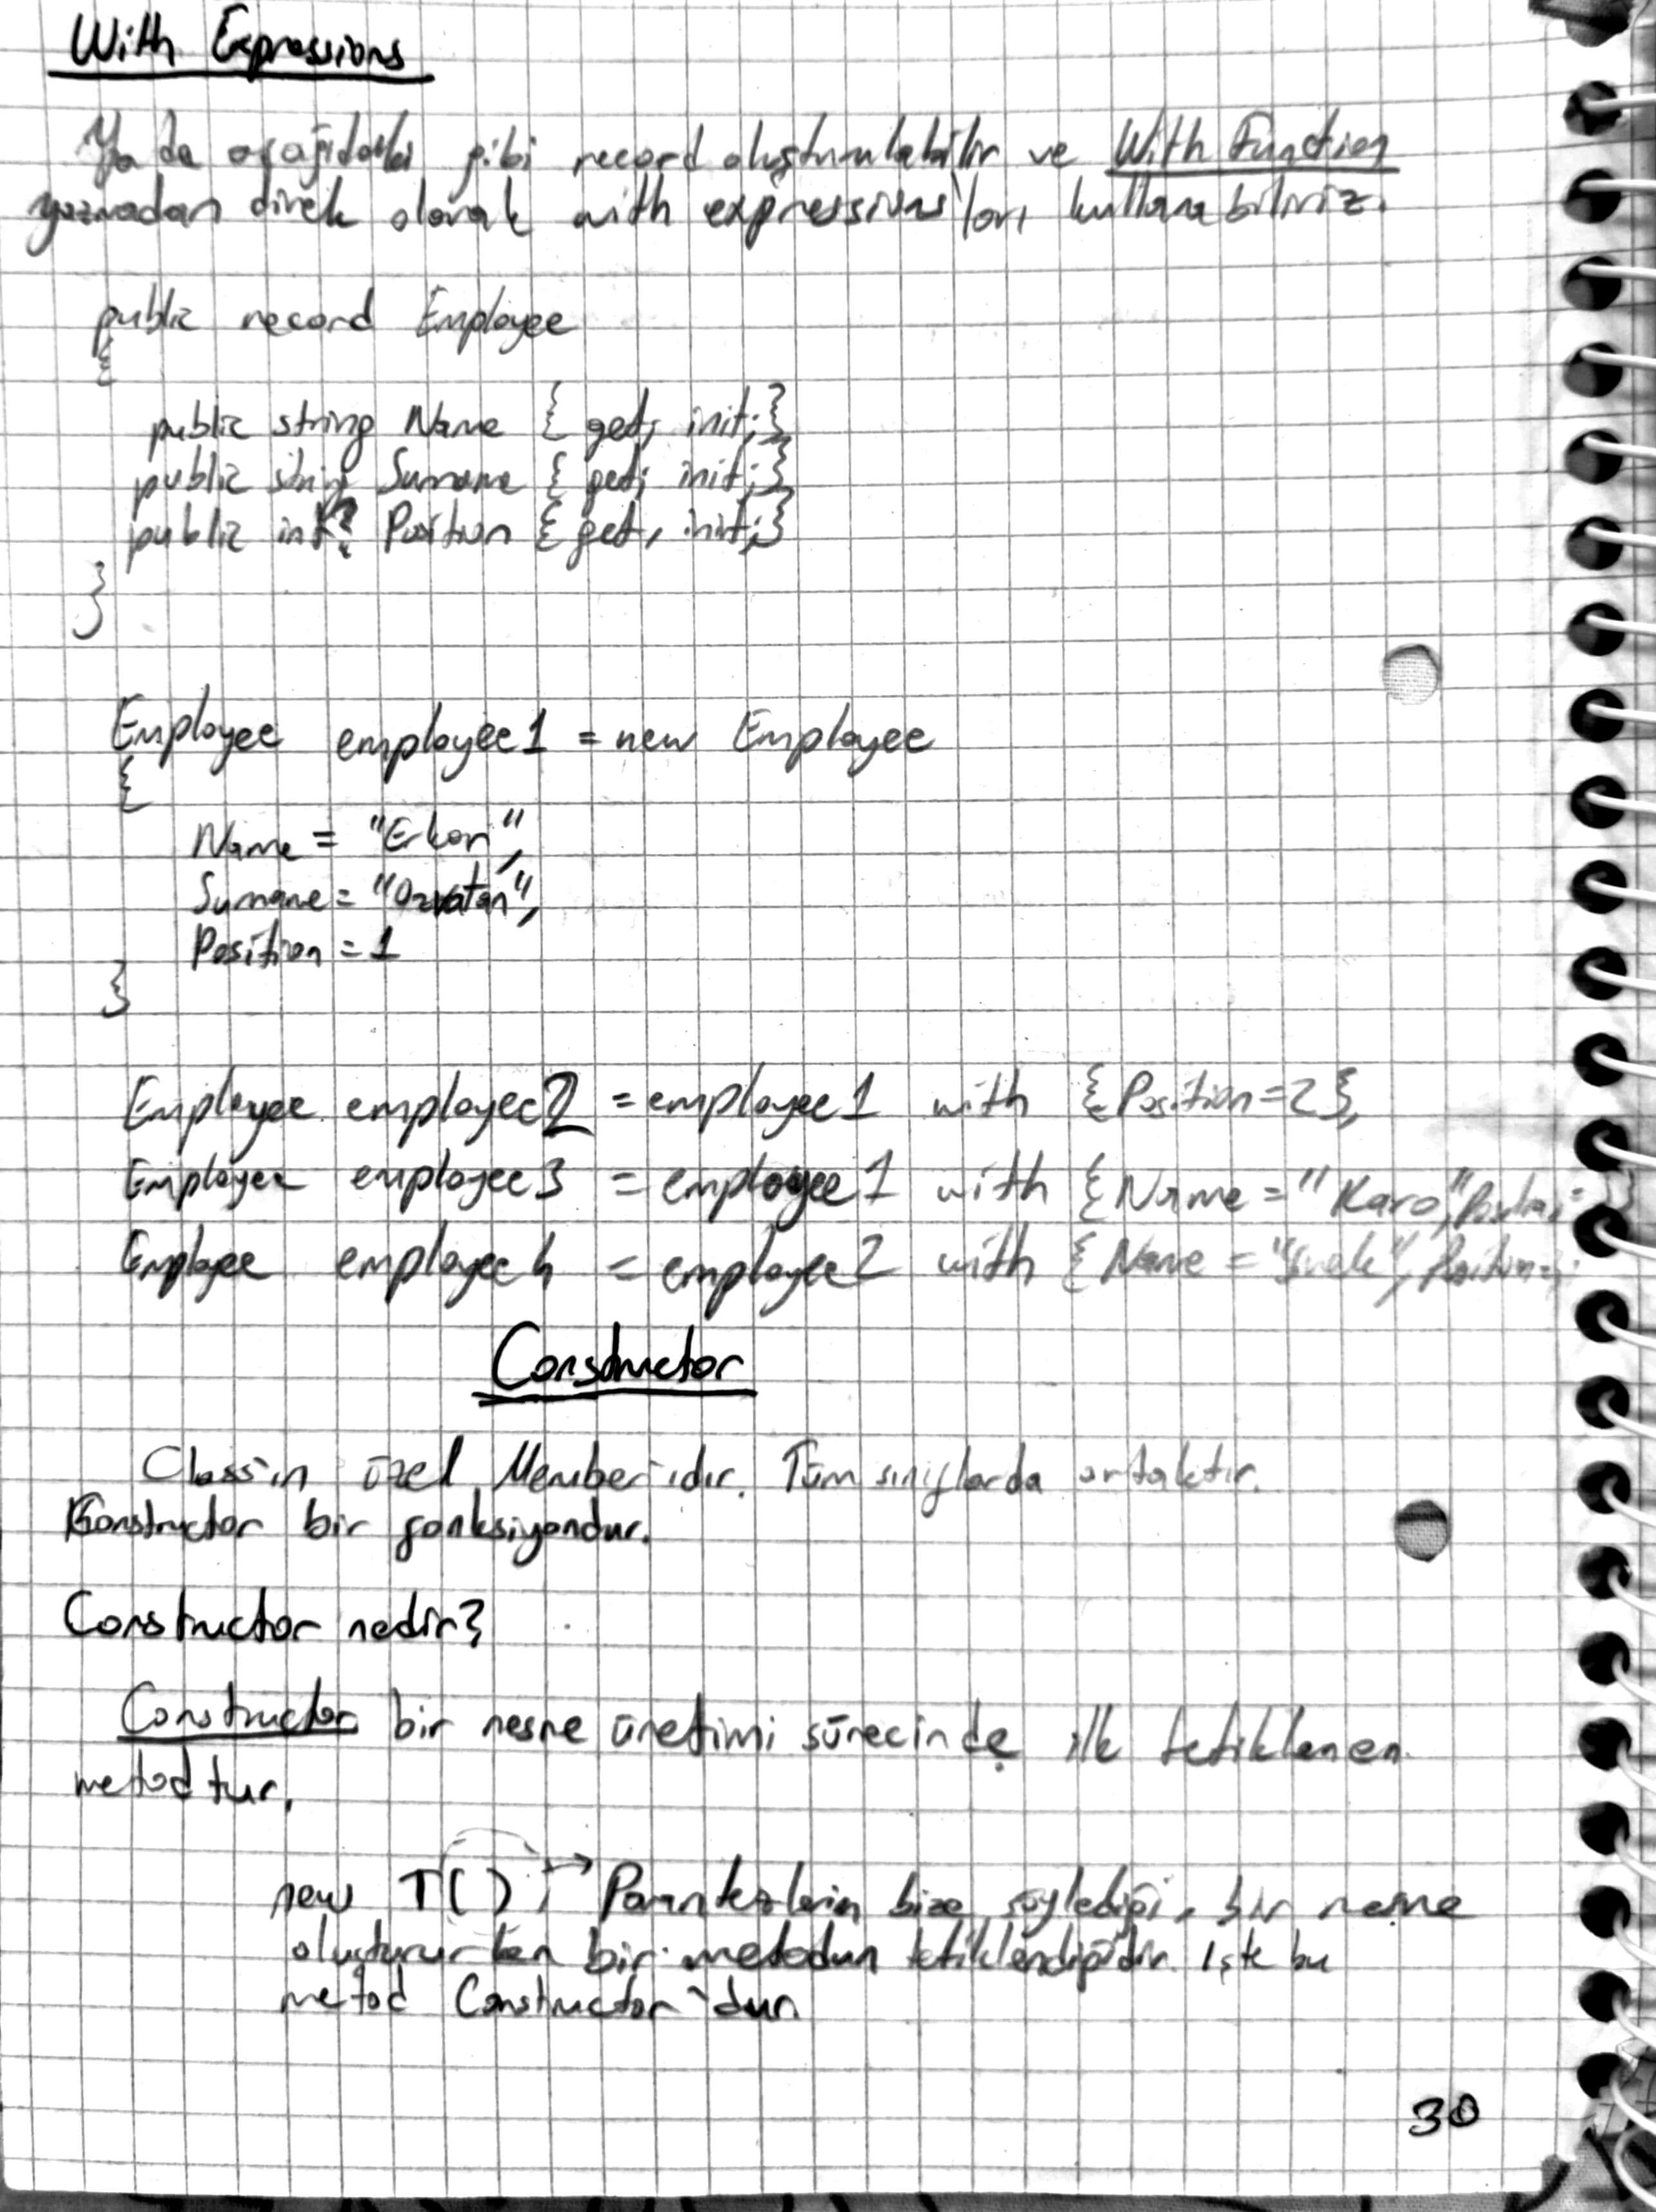 With Expressions
Ya da aşağıdaki gibi record oluşturulabilir ve With Function
yazmadan direk olarak with expressions'ları kullanabiliriz.
public record Employee
{
public string Name { get; init; }
public string Surname { get; init; }
public int? Position { get; init; }
}
Employee employee1 = new Employee
{
Name = "Erkan",
Surname = "Ozvatan",
Position = 1
}
Employee employee2 = employee1 with {Position=2};
Employee employee3 = employee1 with {Name = "Karo",
Employee employee4 = employee2 with {Name =
Constructor
Class'ın özel Member'ıdır. Tüm sınıflarda ortaktır.
Constructor bir fonksiyondur.
Constructor nedir?
Constructor bir nesne üretimi sürecinde ilk tetiklenen
metodtur.
new T(); → Parantezlerin bize söylediği, bir nesne
oluştururken bir metodun tetiklendiğidir. İşte bu
metod Constructor'dur.
30